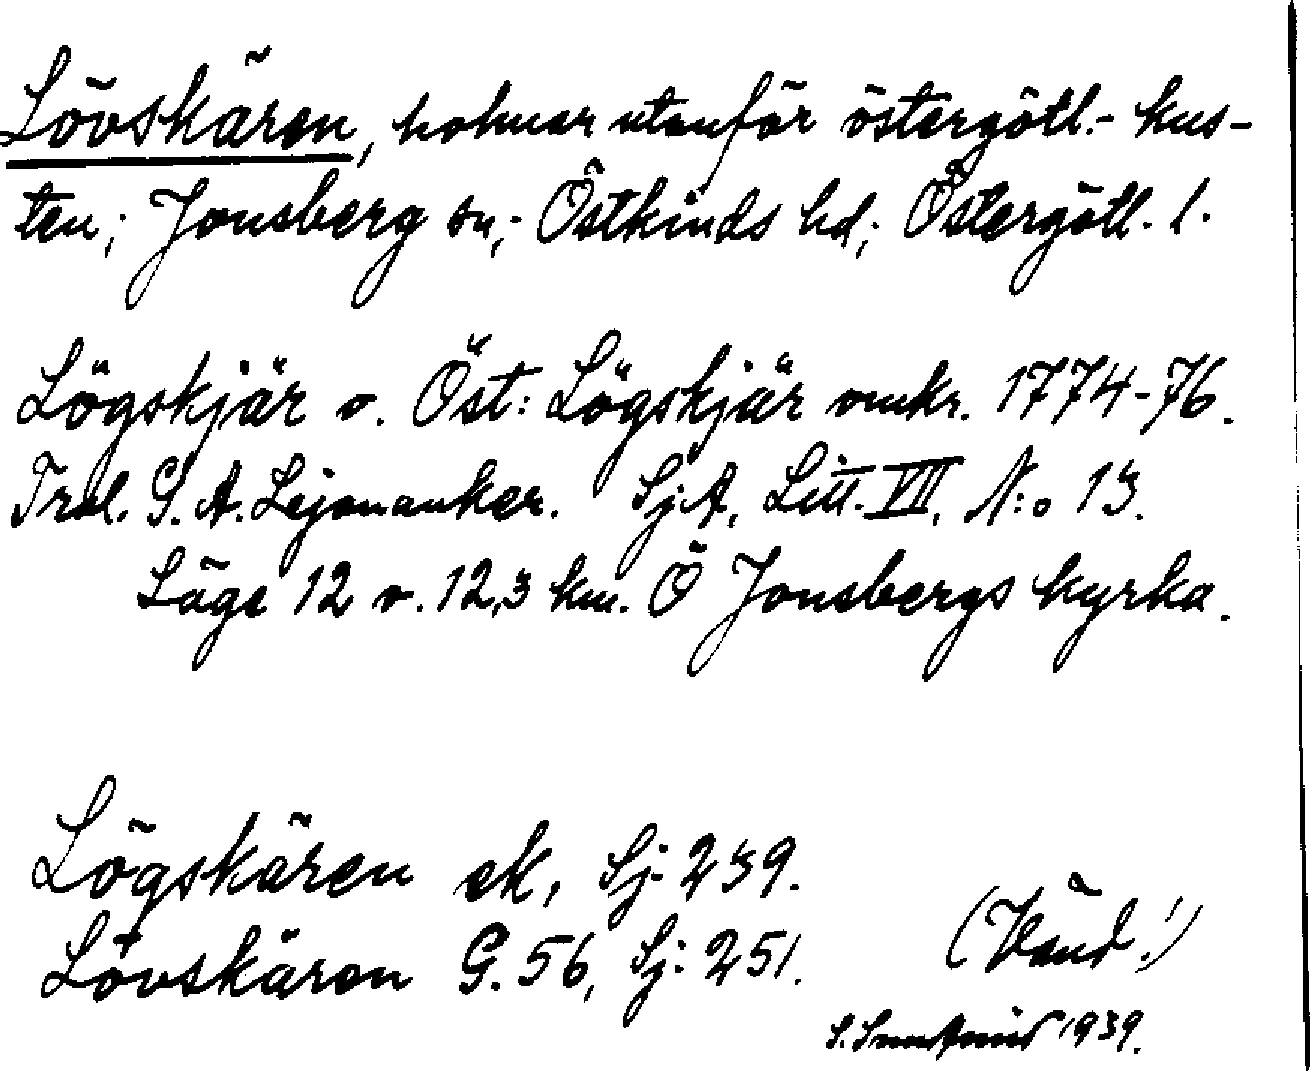 Lövskären, holmar utanför östergötl.- kus-
ten; Jonsberg sn; Östkinds hd; Östergötl. l.
Lögskjär o. Öst: Lögskjär omkr. 1774-76.
Trol. G. A. Lejonanker. SjA, Litt. VII, N:o 13.
Läge 12 o. 12,3 km. Ö Jonsbergs kyrka.
Lögskären ek, Sj. 239.
Lövskären G. 56, Sj: 251.
(Vänd!)
S. 1939.